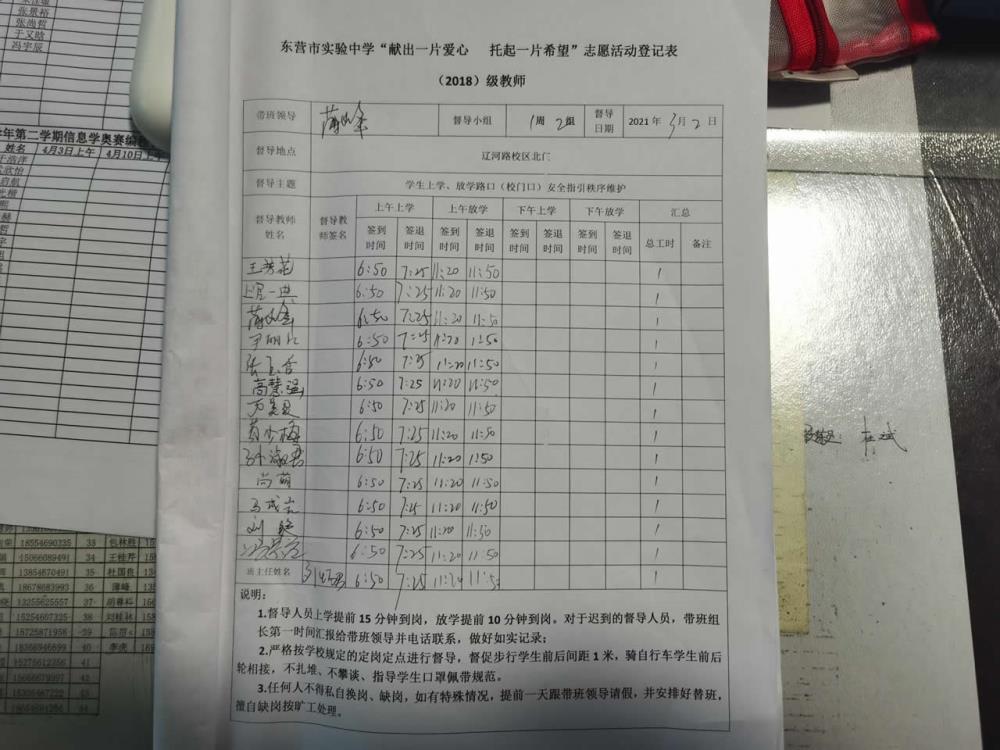 张景裕
张尚哲
于又晗
冯宇辰
年第二学期信息学奥赛编
姓名 4月3日上午 4月10日上午
东营市实验中学“献出一片爱心 托起一片希望”志愿活动登记表
（2018）级教师
带班领导 督导小组 1周 2组 督导日期 2021年3月2日
督导地点 辽河路校区北门
督导主题 学生上学、放学路口（校门口）安全指引秩序维护
督导教师姓名 督导教师签名 上午上学 上午放学 下午上学 下午放学 汇总
签到时间 签退时间 签到时间 签退时间 签到时间 签退时间 签到时间 签退时间 总工时 备注
王芳花 6:50 7:25 11:20 11:50 1
6:50 7:25 11:20 11:50 1
6:50 7:25 11:20 11:50 1
6:50 7:25 11:20 11:50 1
6:50 7:25 11:20 11:50 1
高慧强 6:50 7:25 11:20 11:50 1
6:50 7:25 11:20 11:50 1
黄少梅 6:50 7:25 11:20 11:50 1
孙淑君 6:50 7:25 11:20 11:50 1
尚萌 6:50 7:25 11:20 11:50 1
马成岩 6:50 7:25 11:20 11:50 1
刘艳 6:50 7:25 11:20 11:50 1
6:50 7:25 11:20 11:50 1
班主任姓名 6:50 7:25 11:20 11:50 1
说明：
1.督导人员上学提前15分钟到岗，放学提前10分钟到岗。对于迟到的督导人员，带班组
长第一时间汇报给带班领导并电话联系，做好如实记录；
2.严格按学校规定的定岗定点进行督导，督促步行学生前后间距1米，骑自行车学生前后
轮相接，不扎堆、不攀谈、指导学生口罩佩带规范。
3.任何人不得私自换岗、缺岗，如有特殊情况，提前一天跟带班领导请假，并安排好替班，
擅自缺岗按旷工处理。
18554690335 33 包林胜
15066089491 34 王桂芹
13854670491 35 杜国良
18678683993 36 薄峰
13255625557 37 胡尊科
15254667325 38 刘桂林
18725871958 39
18366946699 40 李虎
15275612356 41
15666679397 42
43
44